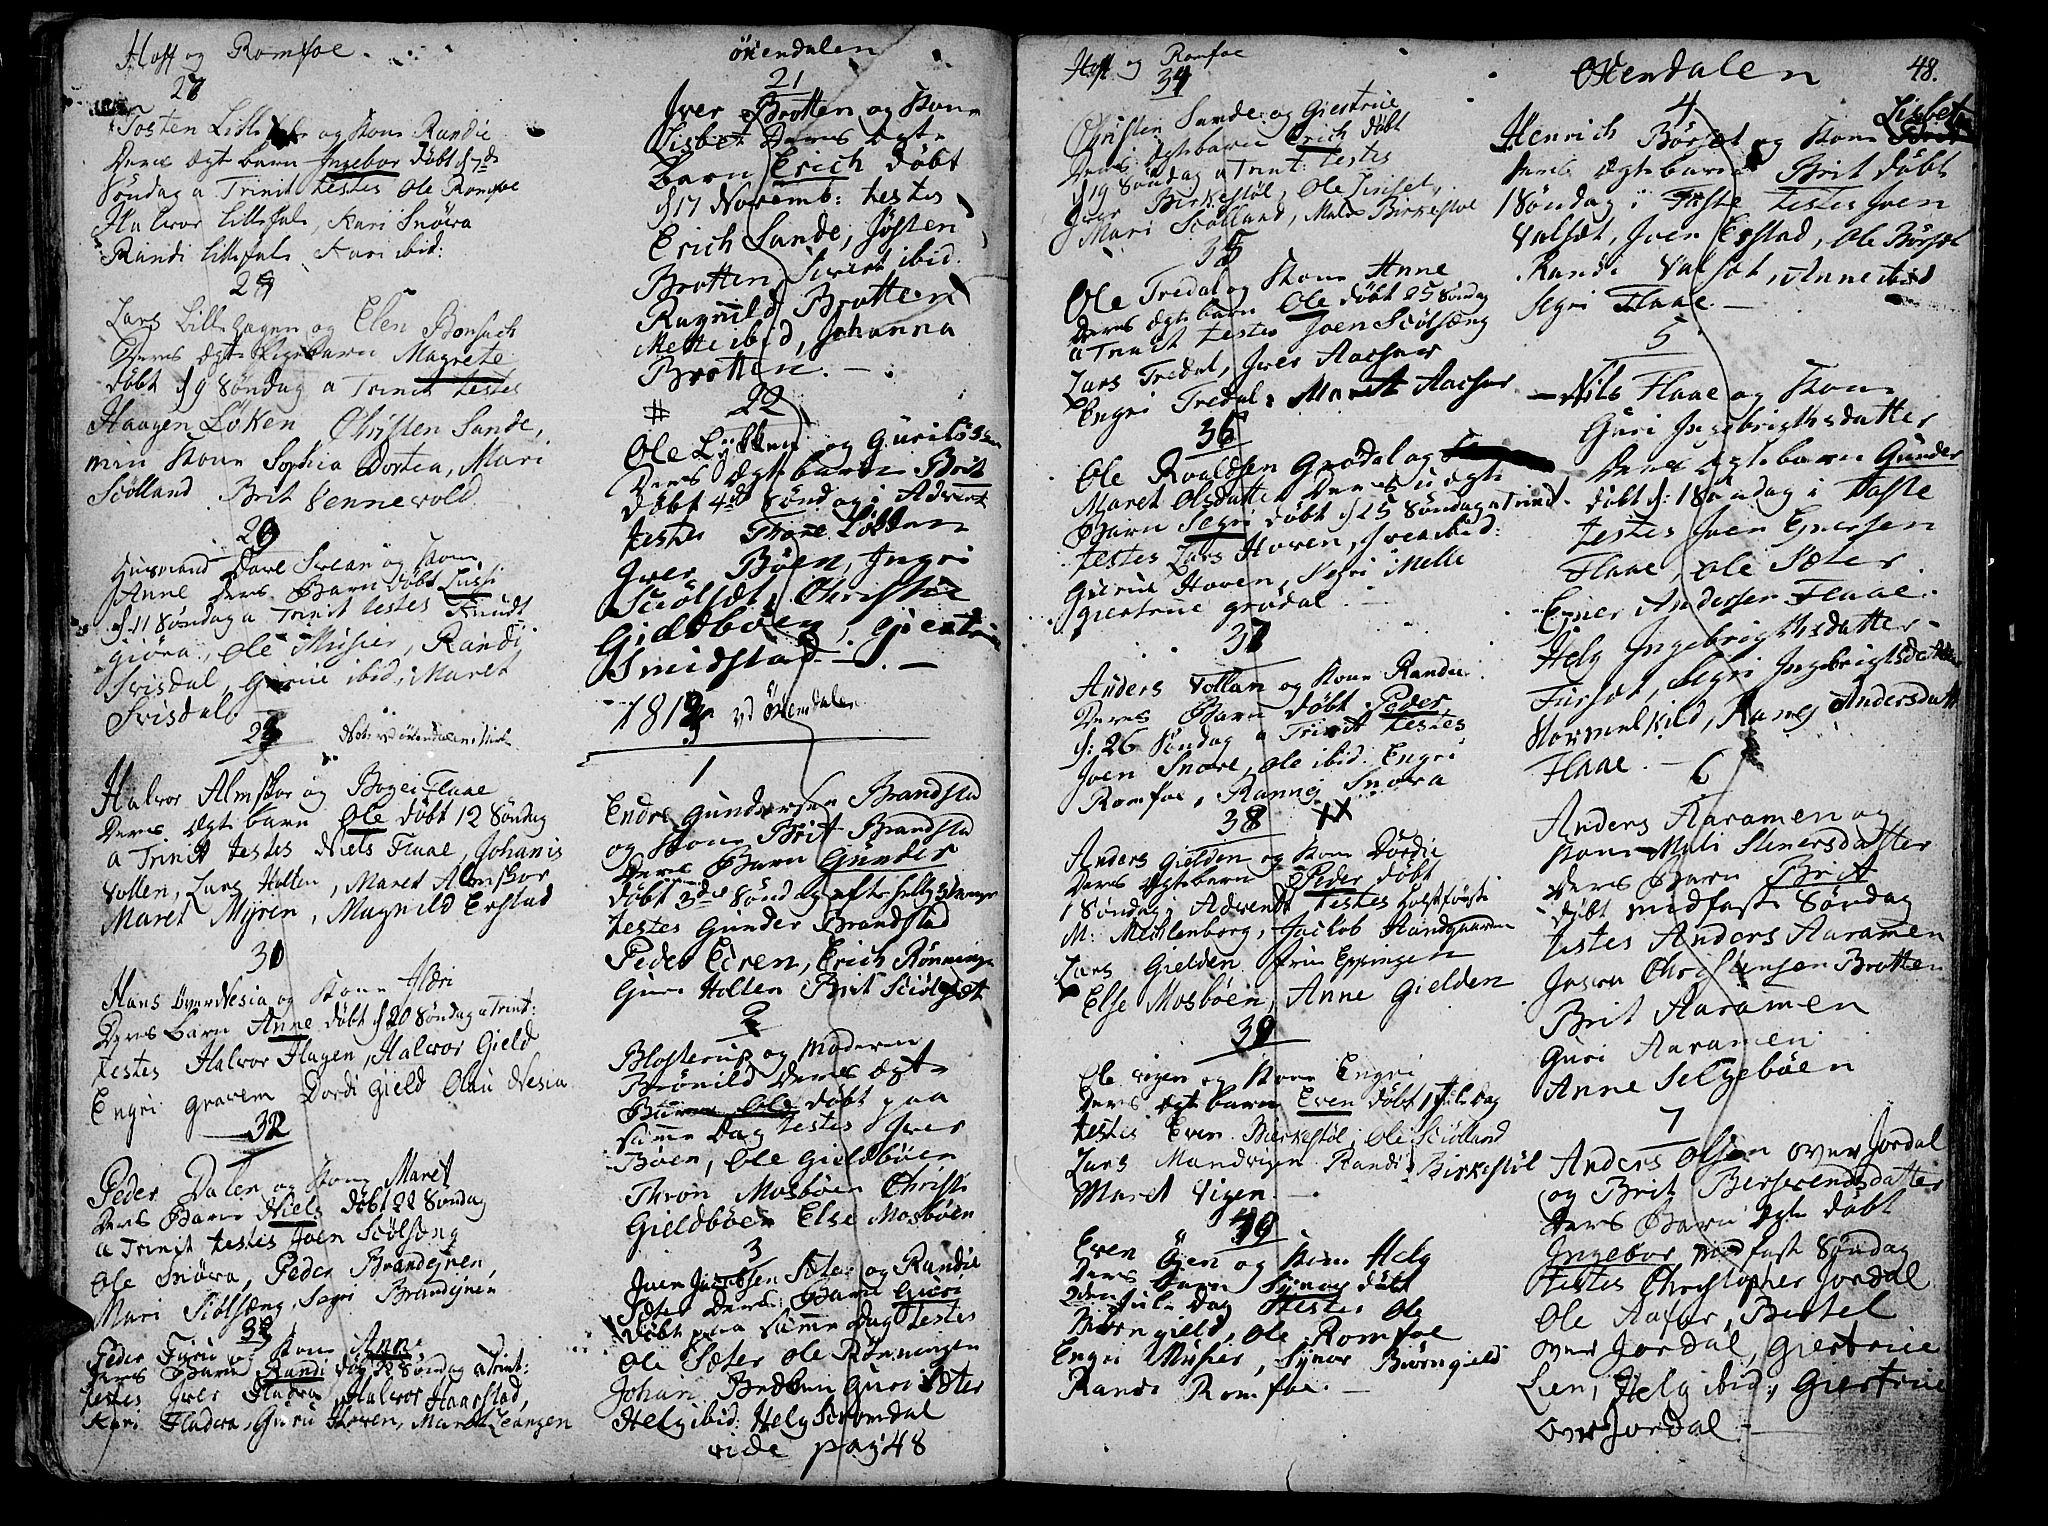 Hoff og Romfoe.
27
Tosten Lille og Kone Randie
Deres Ægte barn Ingebor døbt d 7de
Søndag a Trinit testes Ole Romfoe
Halvor Lillefale, Kari Snøva
Randi Lillefale Kari ibid:
28
Lars Lillehagen og Elen Bonsach
Deres Ægte Pigebarn Magrete
døbt d 9 Søndag a Trinit testes
Haagen Løken Christen Sande,
min Kone Sophia Dortea, Mari
Sciølland Brit Vennevold
29
Husmand Dore Svean og Kone
Anne Deres Barn døbt
d: 11 Søndag a Trinit testes Knudt
giøra, Ole Musier, Randi
Svisdal, Gurue ibid, Maret
Svisdal
Halvor Almskor og Bogei Flaae
Deres Ægte barn Ole døbt 12 Søndag
a Trinit testes Niels Flaae, Johanis
Vollen, Lars Holten, Maret Almskor
Maret Myren, Magnild Erstad
31
Hans øver Nesia og Kone Ildri
Deres barn Anne døbt d 20 Søndag a Trint:
testes Halvor Hagen, Halvor Gield
Engri Gravem Dordi Gield Olau Nesia
32
Peder Dalen og Kone Maret
Deres Barn Niels døbt 22 Søndag
a Trinit testes Joen Sciølseng
Ole Snøva, Peder Brandejnen,
Mari Sciølseng Segri Brandejnen
33
Peder Furu og Kone Anne
Deres Barn Randi døbt Søndag a Trint:
testes Iver Fladvæ, Halvor Haarstad,
Kari Fladvæ, Guru Hoven, Maret Leangen
økendalen
21
Iver Brotten og Kone
Lisbet Deres Ægte
barn Erich døbt
d 17 Novemb: testes
Erich Sande, Jøsten
Brotten, Sivert ibid.
Ragnild Brotten
Mette ibid, Johanna
Brotten.
# 22
Ole Lykken og Guril
Deres Ægte barn Brit
døbt 4de Søndag i Advent
testes Thore Løkken
Iver Bøen, Ingri
Sciølset, Christie
Gieldbøen, Giertrue
Smidstad
1813 vd Økendalen
1
Endre Gundersen Brandstad
og Kone Brit Brandstad
Deres Barn Gunder
døbt 3de Søndag efter hellig 3 Konger
testes Gunder Brandstad
Peder Edren, Erich Rønningen
Guri Holten Brit Sciølset
2
Blosterup og Moderen
Brønild Deres Ægte
Barn Ole døbt paa
samme Dag testes Iver
Bøen, Ole Gieldbøen
Thron Mosbøen Christi
Gieldbøen Else Mosbøen
3
Iver Jacobsen Sæter og Randie
Sæter Deres Barn Guri
døbt paa samme Dag testes
Ole Sæter Ole Rønningen
Johan Brekken Guri Sæter
Helg ibid: Helg Scromdal
vide pag: 48
Hoff og Romfoe
34
Christen Sande og Giestrue
Deres Ægtebarn Erich døbt
d 19 Søndag a Trint: testes
Iver Birkestøl, Ole Linset,
Mari Sciølland, Malene Birkestøl
35
Ole Tredal og Kone Anne
Deres Ægte barn Ole døbt 25 Søndag
a Trinit testes Joen Sciølseng
Lars Tredal, Iver Aachner
Engri Tredal, Maret Aachner
36
Ole Roaldsen Grødal og
Maret Olsdatter Deres u ægte
Barn Segri døbt d 25 Søndag a Trinit.
testes Lars Hoven, Iver ibid:
Gurue Hoven, Segri Melle
giertrue grødal
37
Anders Vollan og Kone Randie
Deres Barn døbt Peder
d: 26 Søndag a Trinit testes
Joen Snove, Ole ibid. Engri
Romfoe, Ranneg Snøva
38 XX
Anders Gielden og Kone Dordie
Deres Ægtebarn Peder døbt
1 Søndag i Advendt testes
M: Mechlenborg, Jackob Handgaarden
Lars Gielden frue Eppingen
Else Mosbøen, Anne Gielden
39
Ole Vigen og Kone Engri
Deres Ægte barn Even døbt 1 Jule Dag
testes Even Birkestøl, Ole Sciølland
Lars Mandvigen Randi Birkestøl
Maret Vigen.
Even Øjen og Kone Helg
Deres Barn Synøv døbt
2den Jule Dag testes Ole
Biørngield, Ole Romfoe
Engri Musier, Synov Biørngield
Randi Romfoe.
Økendalen 48.
4
Henrich Børset og Kone Lisbet
Deres Ægtebarn Brit døbt
1 Søndag i Faste testes Joen
Valset, Joen Erstad, Ole Børset
Randi Valset, Anne ibid
Segri Flaae
5
Nils Flaae og Kone
Guri Ingebrigthsdatter
Deres Ægtebarn Gunder
døbt d: 1 Søndag i Faste
testes Joen Enersen
Flaae, Ole Sæter
Ener Andersen Flaae
Helg Ingebrigthsdatter
Furset, Segri Ingebrigtsdatter
Hormelkild, Raneg Andersdatt
Flaae.
6
Anders Aaramen og
Kone Mali Stenersdatter
Deres Barn Brit
døbt midfaste Søndag
testes Anders Aaramen
Christensen Brotten
Brit Aaramen
Guri Aaramen
Anne Selgebøen
7
Anders Olsen over Jordal
og Brit Berserendsdatter
Deres Barn Ægte døbt
Ingebor midfaste Søndag
testes Christopher Jordal
Ole Aafar, Bertel
over Jordal, Giertrue
Lien, Helg ibid, Giertrue
over Jordal